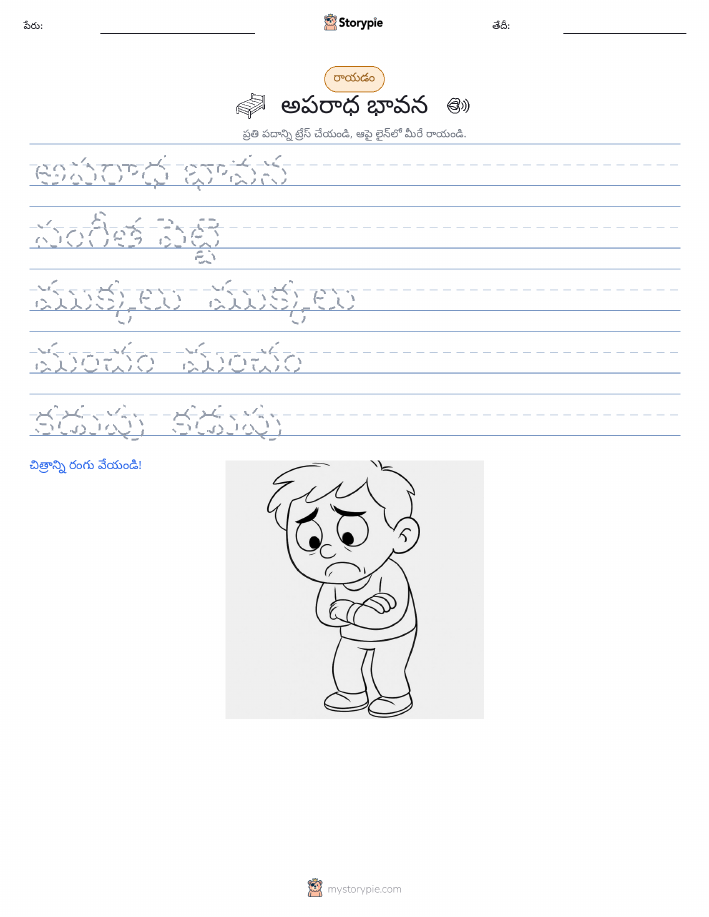 పేరు:
Storypie
తేదీ:
రాయడం
అపరాధ భావన
ప్రతి పదాన్ని ట్రేస్ చేయండి, ఆపై లైన్‌లో మీరే రాయండి.
అపరాధ భావన
సంగీత పెట్టె
ముక్కలు ముక్కలు
మంచం మంచం
కడుపు కడుపు
చిత్రాన్ని రంగు వేయండి!
mystorypie.com